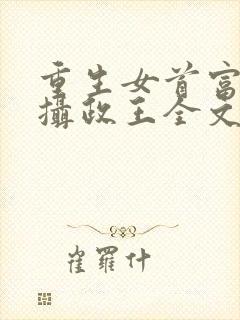 重生女首富
攝政王全文
崔羅什